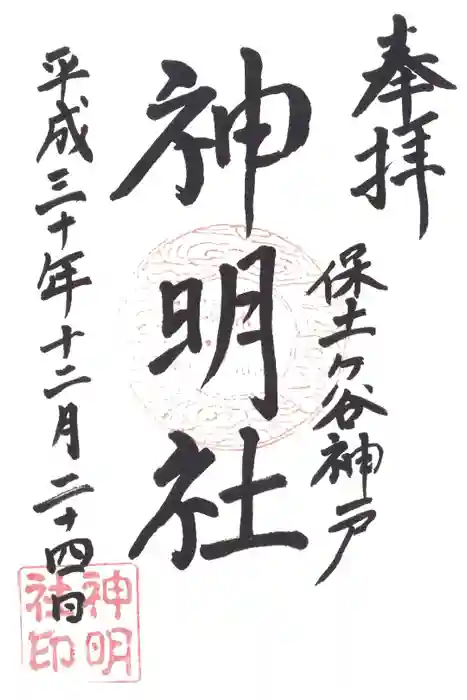 奉拝
保土ヶ谷神戸
神明社
平成三十年十二月二十四日
神明社印